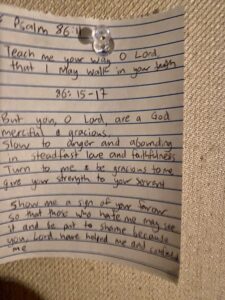 Psalm 86:1
Teach me your way O Lord
that I may walk in your
86: 15-17
But you, O Lord, are a God
merciful & gracious,
Slow to anger and abounding
in steadfast love and faithfulness
Turn to me & be gracious to me
give your strength to your servant
Show me a sign of your favour
so that those who hate me may see
it and be put to shame because
you, Lord, have helped me and
me